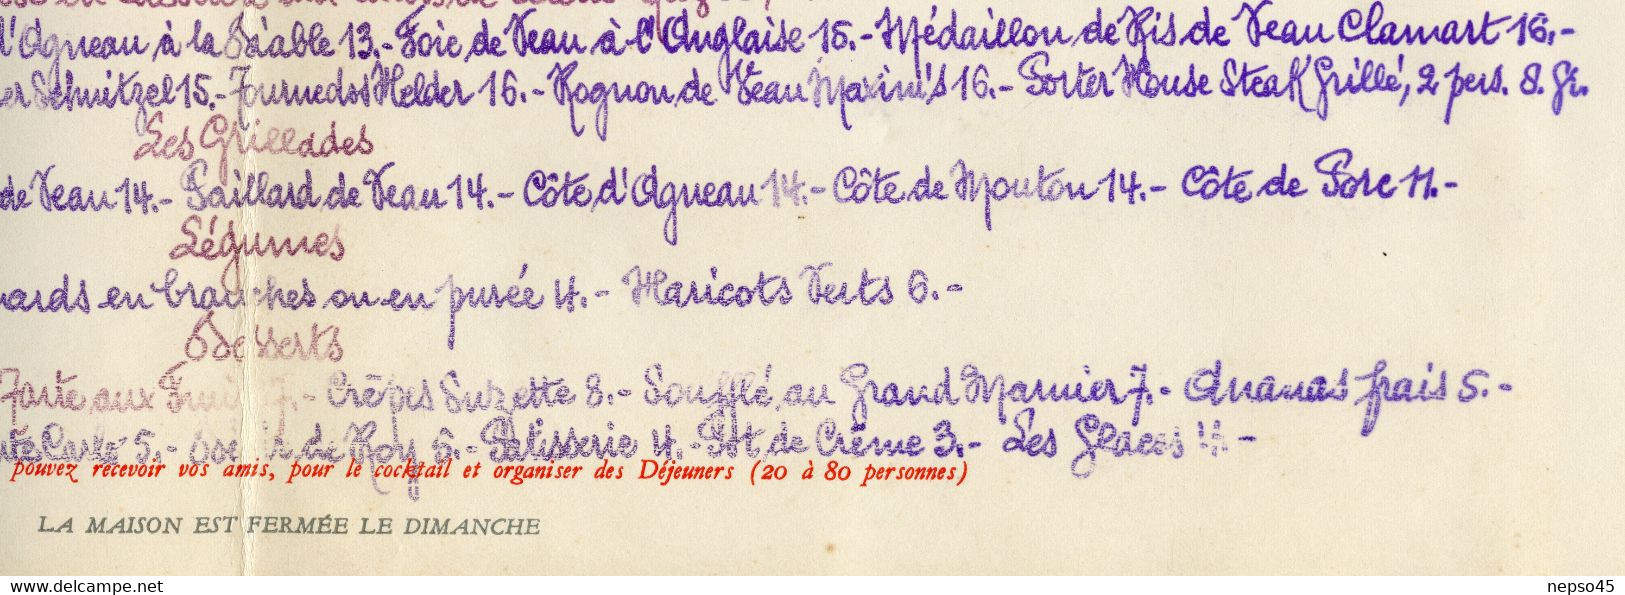 d'Agneau à la Sdable 13.- Foie de Veau à l'Anglaise 15.- Médaillon de Ris de Veau Clamart 16.-
er Schnitzel 15.- Tournedos Helder 16.- Rognon de Veau Maxim's 16.- Porter House Steak Grillé, 2 pers. 8. Gr.
Les Grillades
de Veau 14.- Paillard de Veau 14.- Côte d'Agneau 14.- Côte de Mouton 14.- Côte de Porc 11.-
Légumes
nards en branches ou en purée 4.- Haricots Verts 6.-
Desserts
Tarte aux Fruits 7.- Crêpes Suzette 8.- Soufflé au Grand Marnier 7.- Ananas frais 5.-
nte Carlo 5.- de Roy 6.- Patisserie 4.- Pot de Crème 3.- Les Glaces 4.-
pouvez recevoir vos amis, pour le cocktail et organiser des Déjeuners (20 à 80 personnes)
LA MAISON EST FERMÉE LE DIMANCHE
www.delcampe.net
nepso45